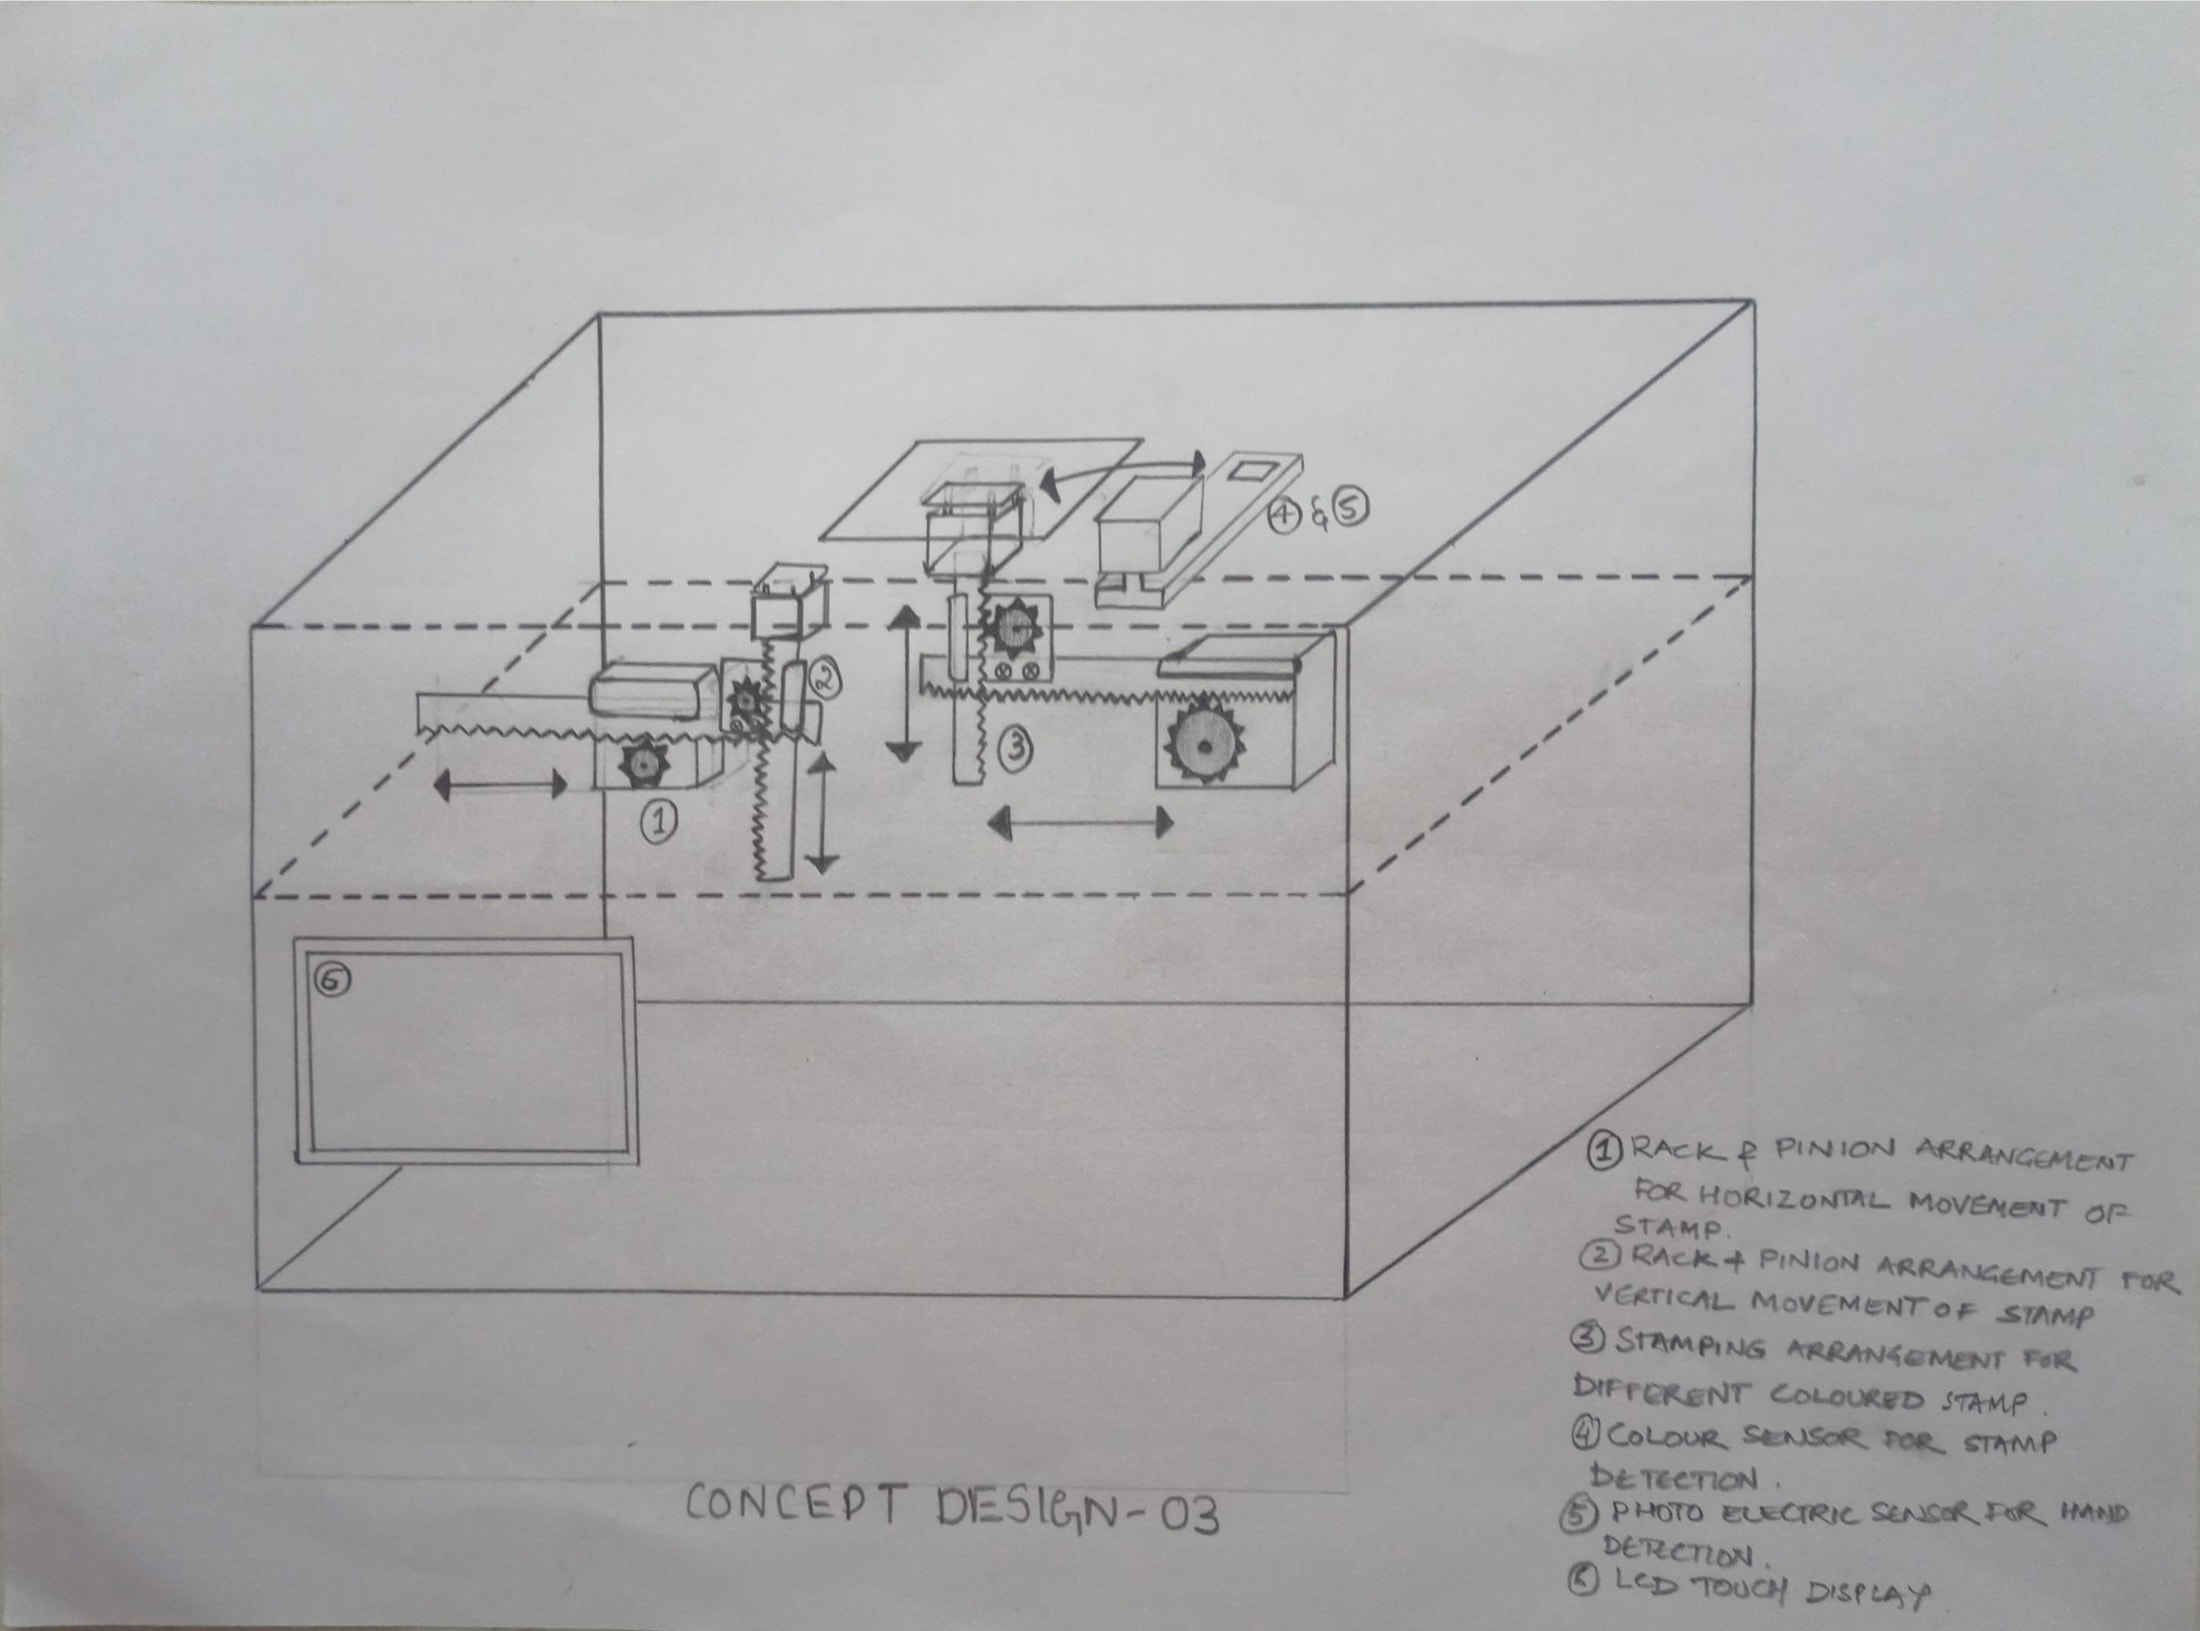 4 & 5
2
3
1
6
1 RACK & PINION ARRANGEMENT
FOR HORIZONTAL MOVEMENT OF
STAMP.
2 RACK + PINION ARRANGEMENT FOR
VERTICAL MOVEMENT OF STAMP
3 STAMPING ARRANGEMENT FOR
DIFFERENT COLOURED STAMP.
4 COLOUR SENSOR FOR STAMP
DETECTION.
5 PHOTO ELECTRIC SENSOR FOR HAND
DETECTION.
6 LCD TOUCH DISPLAY
CONCEPT DESIGN-03